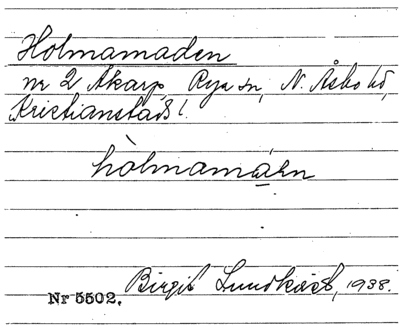 Holmamaden
nr 2 Åkarp Rya sn, N. Åsbo hd,
Kristianstads l.
hòlmamáen
Birgit Lundkvist, 1938.
Nr 5502.